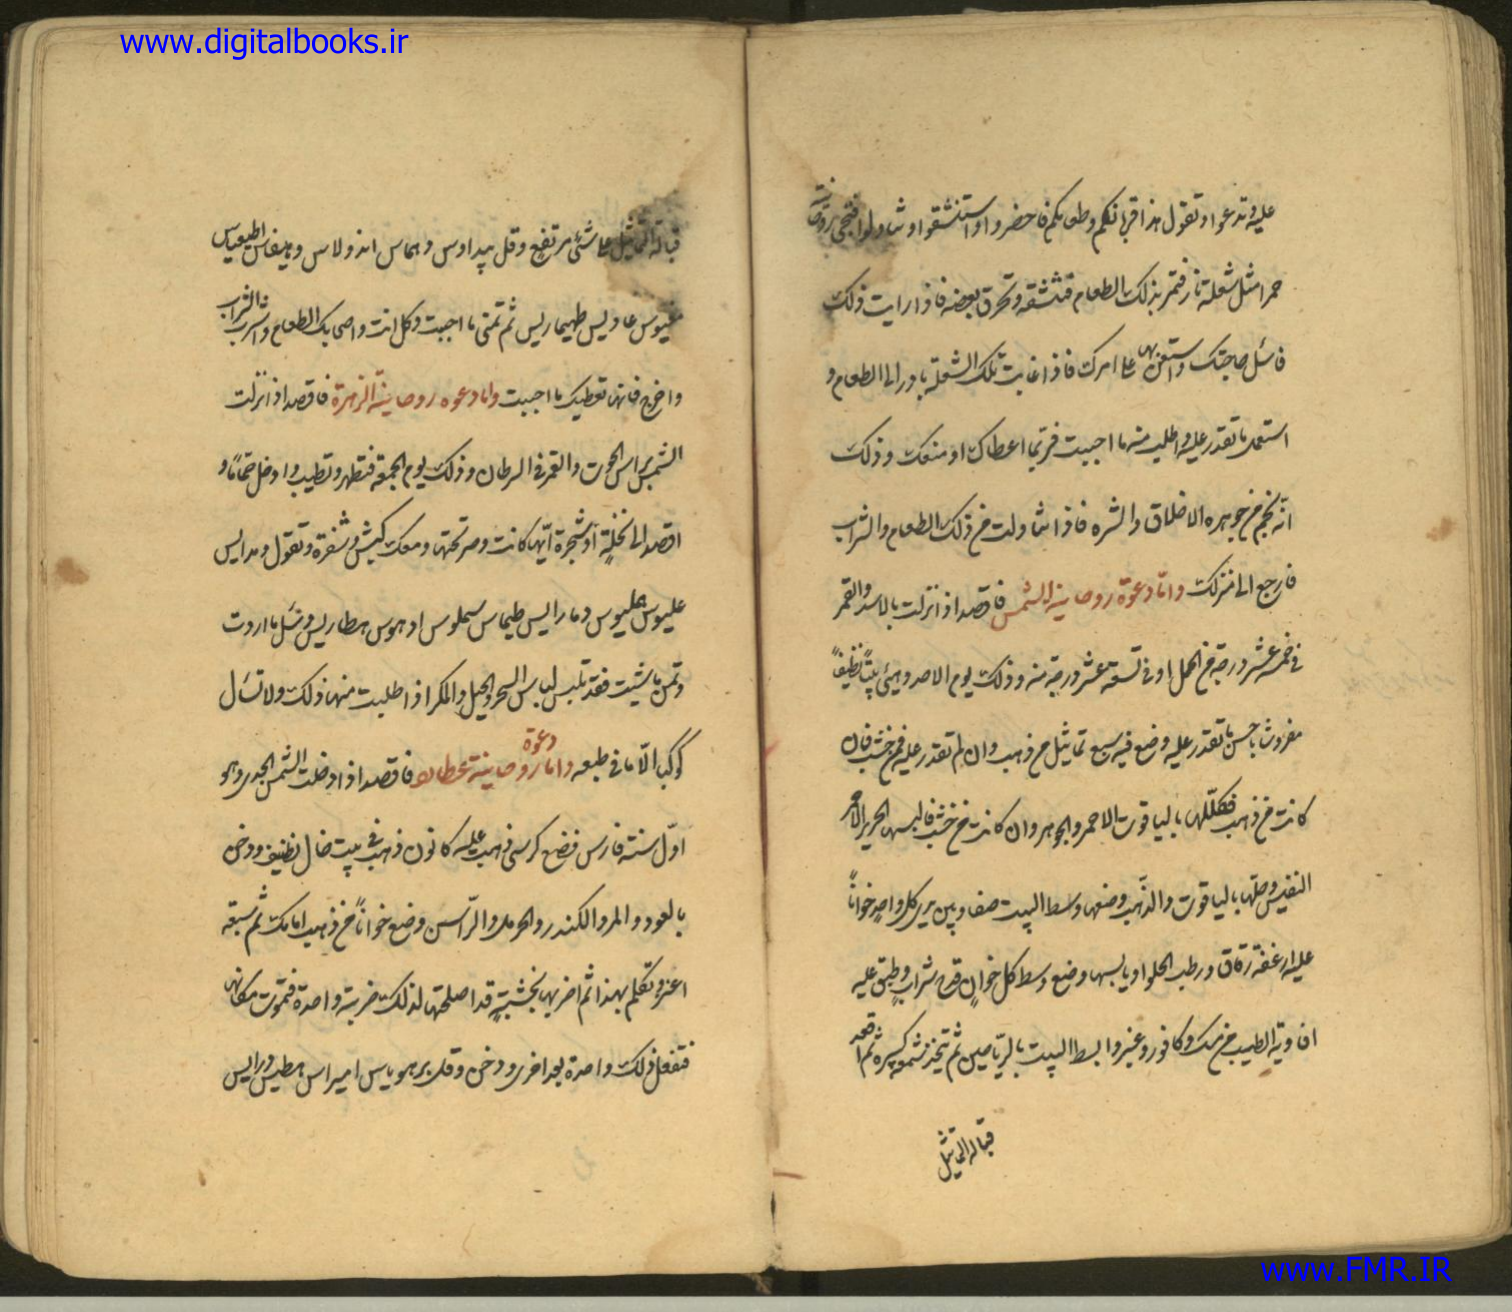 www.digitalbooks.ir
عليه وتدعوا وتقول هذا قربانكم وطعامكم فاحضروا واستنشقوا وشاولوا فتجئ روحانية
حمرا مثل شعلة نار فتمر بذلك الطعام فتنشقه وتحرق بعضه فاذا رايت ذلك
فاسئل حاجتك واستعن بها على امرك فاذا غابت تلك الشعلة بادر الى الطعام و
استعمل ما تقدر عليه واطلب منه ما احببت فربما اعطاك او منعك وذلك
انه نجم من جوهره الاخلاق والشره فاذا شاولت من ذلك الطعام والشراب
فارجع الى منزلك وامّا دعوة روحانية الشمس فاقصد اذا نزلت بالاسد والقمر
فى خمسة عشر درجة من الحمل او فى تسعة عشر درجة منه وذلك يوم الاحد وهيئ بيتًا نظيفًا
مفروشا باحسن ما تقدر عليه وضع فيه سبع تماثيل من ذهب وان لم تقدر عليه فمن خشب فان
كانت من ذهب فكلّلها باليا قوت الاحمر والجوهر وان كانت من خشب فالبسها الحرير الاحمر
النفيس وحلّها باليا قوت والذّهب وضعها وسط البيت صفا وبين يدى كل واحد خوانًا
عليه ارغفة رقاق ورطب الحلوا ويابسها وضع وسط كل خوان قدح شراب وطبق عليه
افاوية الطيب من مسك وكافور وعنبر وابسط البيت بالريّاحين ثم تتخذ شمعة كبيرة ثم اقعد
قبالة التماثيل
قبالة التماثيل على شئ مرتفع وقل بيداوس دهماس اندولاس وهيفاس اطيعيدس
مغيوس عاديس طهيماريس ثم تمنى ما احببت وكل انت واصحابك الطعام واشرب الشراب
واخرج فانها تعطيك ما احببت واما دعوه روحانية الزهرة فاقصد اذا نزلت
الشمس براس الحوت والقمر فى السرطان وذلك يوم الجمعة فتطهر وتطيب وادخل حمّامًا و
اقصد الى نخلة او شجرة ايّها كانت وصر تحتها ومعك كبش وشفرة وتقول وبدايس
عليوس هليوس دمارايس طيماس سملوس ادهوس هطاريس وتسئل ما اردت
وتمن ما شئت فقد تلبس لباس السحر والحيل والمكر اذا طلبت منها ذلك ولا تسأل
كوكبا الّا ما فى طبعه واما دعوة روحانية عطارد فاقصد اذا دخلت الشمس الجدى وهو
اوّل سنة فارس فضع كرسى ذهب عليه كانون ذهب فى بيت خال نظيف ودخن
بالعود والمر والكندر والحرمل والرّاسن وضع خوانًا من ذهب امامك ثم سبعة
اعنز وتكلم بهذا ثم اضربها بخشبة قد اصلحتها لذلك ضربة واحدة فتموت مكانها
فتفعل ذلك واحدة بعد اخرى ودخن وقل برهوياس اميراس هطيس ورايس
www.FMR.IR